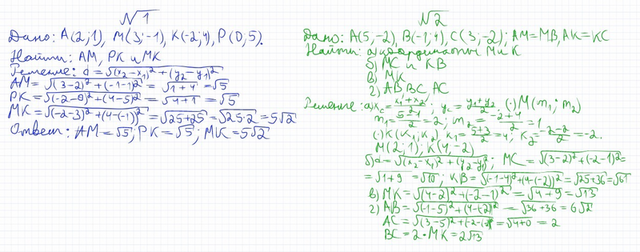 №1
Дано: A(2;1), M(3;-1), K(-2;4), P(0;5).
Найти: AM, PK и MK
Решение: d = √(x₂-x₁)²+(y₂-y₁)²
AM = √(3-2)²+(-1-1)² = √1+4 = √5
PK = √(-2-0)²+(4-5)² = √4+1 = √5
MK = √(-2-3)²+(4-(-1))² = √25+25 = √25·2 = 5√2
Ответ: AM=√5; PK=√5; MK=5√2
№2
Дано: A(5;-2), B(-1;4), C(3;-2); AM=MB, AK=KC
Найти: а) координаты M и K
б) MC и KB
в) MK
г) AB, BC, AC
Решение: а) x₂ = x₁+x₂/2; y₂ = y₁+y₂/2, (·)M(m₁; m₂)
m₁ = 5-1/2 = 2; m₂ = -2+4/2 = 1
(·)K(k₁, k₂), k₁ = 5+3/2 = 4; k₂ = -2-2/2 = -2.
M(2;1), K(4;-2)
б) d = √(x₂-x₁)²+(y₂-y₁)²; MC = √(3-2)²+(-2-1)² =
= √1+9 = √10; KB = √(-1-4)²+(4-(-2))² = √25+36 = √61
в) MK = √(4-2)²+(-2-1)² = √4+9 = √13
г) AB = √(-1-5)²+(4-(-2))² = √36+36 = 6√2
AC = √(3-5)²+(-2-(-2))² = √4+0 = 2
BC = 2·MK = 2√13